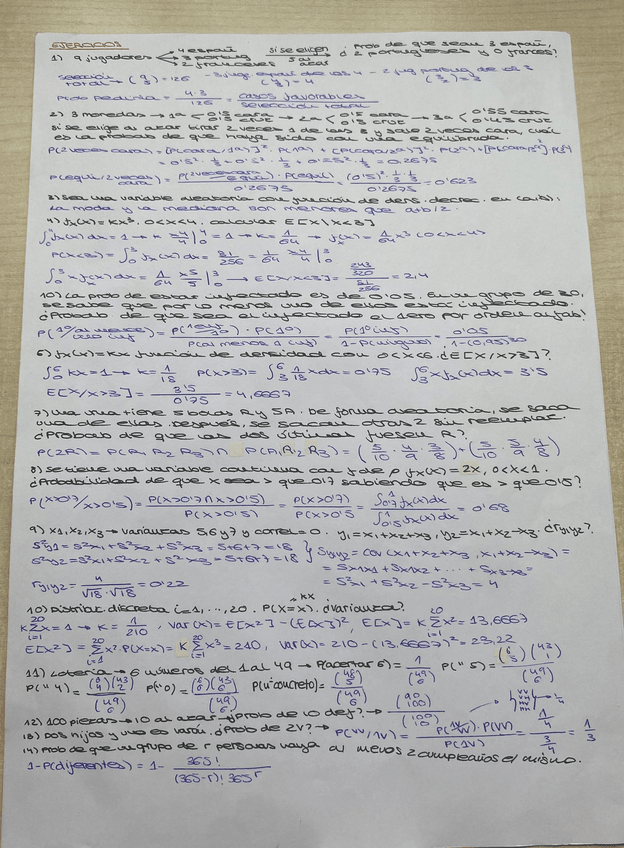 EJERCICIOS
1) 9 jugadores 4 españ, 3 portug, 2 franceses si se eligen 5 al azar ¿Prob de que sean 3 españ, 2 portugueses y 0 frances?
Selección total → (9 5) = 126 - 3 jug españ de los 4 (4 3) = 4 - 2 jug portug de los 3 (3 2) = 3
Prob pedida = 4·3/126 = casos favorables/selección total
2) 3 monedas → 1a 0'5 cara 0'5 cruz → 2a 0'5 cara 0'5 cruz → 3a 0'55 cara 0'45 cruz
Si se elige al azar tirar 2 veces 1 de las 3 y sale 2 veces cara, cuál
es la probab de que haya sido con una equilibrada.
P(2 veces cara) = [P(cara/1a)]² · P(1a) + [P(cara/2a)]² · P(2a) + [P(cara/3a)]² · P(3a)
= 0'5² · 1/3 + 0'5² · 1/3 + 0'55² · 1/3 = 0'2675
P(equi/2 veces cara) = P(2 veces cara/equi) · P(equi) / 0'2675 = (0'5)² · 1/3 · 1/3 / 0'2675 = 0'623
3) Sea una variable aleatoria con función de dens. decrec. en (a,b):
La moda y la mediana son menores que a+b/2.
4) fx(x) = kx³, 0<x<4. calcular E[X/X<3]
∫₀⁴ fx(x)dx = 1 → k x⁴/4 |₀⁴ = 1 → k = 1/64 → fx(x) = 1/64 x³ (0<x<4)
P(X<3) = ∫₀³ fx(x)dx = 81/256 = 1/64 x⁴/4 |₀³
∫₀³ x fx(x)dx = 1/64 x⁵/5 |₀³ → E[X/X<3] = 243/320 / 81/256 = 2,4
10) La prob de estar infectado es de 0'05. En un grupo de 30,
se sabe que por lo menos uno de ellos está infectado.
¿Probab de que sea el infectado el 1ero por orden alfab?
P(1º/al menos uno inf) = P(1 inf/1º) · P(1º) / P(al menos 1 inf) = P(1º inf) / 1-P(ninguno) = 0'05 / 1-(0,95)30
6) fx(x) = kx función de densidad con 0<x<6. ¿E[X/X>3]?
∫₀⁶ kx = 1 → k = 1/18 P(X>3) = ∫₃⁶ 1/18 x dx = 0'75 ∫₃⁶ x fx(x)dx = 3'5
E[X/X>3] = 3'5/0'75 = 4,6667
7) Una urna tiene 5 bolas R y 5 A. De forma aleatoria, se saca
una de ellas. Después, se sacan otras 2 sin reemplaz.
¿Probab de que las dos últimas fuesen R?
P(2R) = P(R₁ R₂ R₃) ∩ P(A₁ R₂ R₃) = (5/10 · 4/9 · 3/8) + (5/10 · 5/9 · 4/8)
8) Se tiene una variable continua con f de p fx(x) = 2x, 0<x<1.
¿Probabilidad de que x sea > que 0'7 sabiendo que es > que 0'5?
P(X>0'7/X>0'5) = P(X>0'7 ∩ X>0'5) / P(X>0'5) = P(X>0'7) / P(X>0'5) = ∫₀'₇¹ fx(x)dx / ∫₀'₅¹ fx(x)dx = 0'68
9) x1, x2, x3 → varianzas 5, 6 y 7 y correl = 0. y₁ = x₁+x₂+x₃, y₂ = x₁+x₂-x₃. ¿ry₁y₂?
S²y1 = S²x1 + S²x2 + S²x3 = 5+6+7 = 18 } Sy₁y₂ = cov (x1+x2+x3, x1+x2-x3) =
S²y2 = S²x1 + S²x2 + S²x3 = 5+6+7 = 18 = Sx1x1 + Sx1x2 + ... - Sx3x3 =
ry1y2 = 4 / √18 · √18 = 0'22 = S²x1 + S²x2 - S²x3 = 4
10) Distrib. discreta i=1,..., 20. P(X=x) = kx. ¿varianza?
k Σx = 1 → k = 1/210, Var(x) = E[x²] - (E[x])², E[x] = k Σ x² = 13,6667
E[x²] = Σ x² · P(X=x) = k Σ x³ = 210, Var(x) = 210 - (13,6667)² = 23,22
11) Lotería → 6 números del 1 al 49 → P(acertar 6) = 1/(49 6) P(" 5) = (6 5)(43 1)/(49 6)
P(" 4) = (6 4)(43 2)/(49 6) P(" 0) = (6 0)(43 6)/(49 6) P(1 concreto) = (48 5)/(49 6)
12) 100 piezas → 10 al azar → ¿Prob de 10 def? →
13) Dos hijos y uno es varón. ¿Prob de 2V? → P(VV/1V) = P(1V/VV) · P(VV) / P(1V) = 1/4 / 3/4 = 1/3
14) Prob de que un grupo de r personas haya al menos 2 cumpleaños el mismo.
1-P(diferentes) = 1 - 365! / (365-r)! 365ʳ